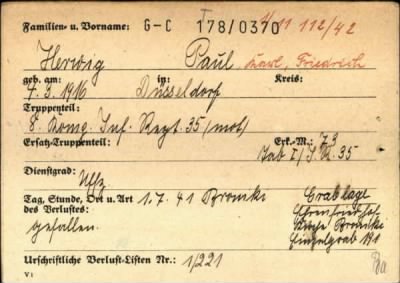 Familien- u. Vorname: G-C 178/0370 4/11 112/42
Herwig Paul, Karl, Friedrich
geb. am: in: Kreis:
7.3.1916 Düsseldorf
Truppenteil:
8. Komp. Inf. Regt. 35 (mot)
Ersatz-Truppenteil: Erk.-M.: 73
I/J.R. 35
Dienstgrad: Uffz
Tag, Stunde, Ort u. Art 1.7.41 Bronnki Grablage
des Verlustes: Ehrenfriedhof
gefallen. Kirche Bronnki
Einzelgrab 191
Urschriftliche Verlust-Listen Nr.: 1/221
V1